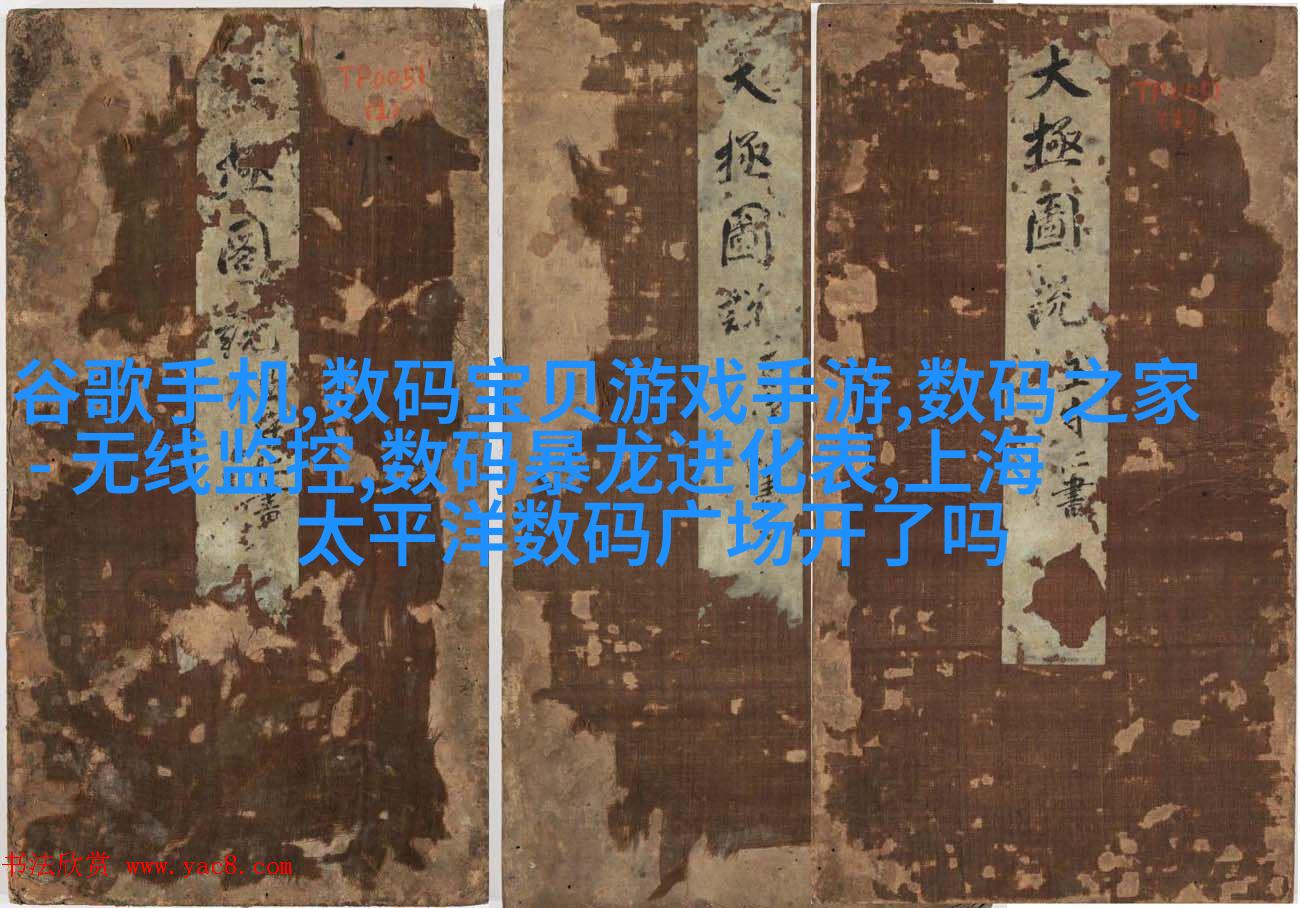 TP0051
(1)
極圖說
大極圖說
大極圖说
書
谷歌手机,数码宝贝游戏手游,数码之家
- 无线监控,数码暴龙进化表,上海
太平洋数码广场开了吗
书法欣赏 www.yac8.com